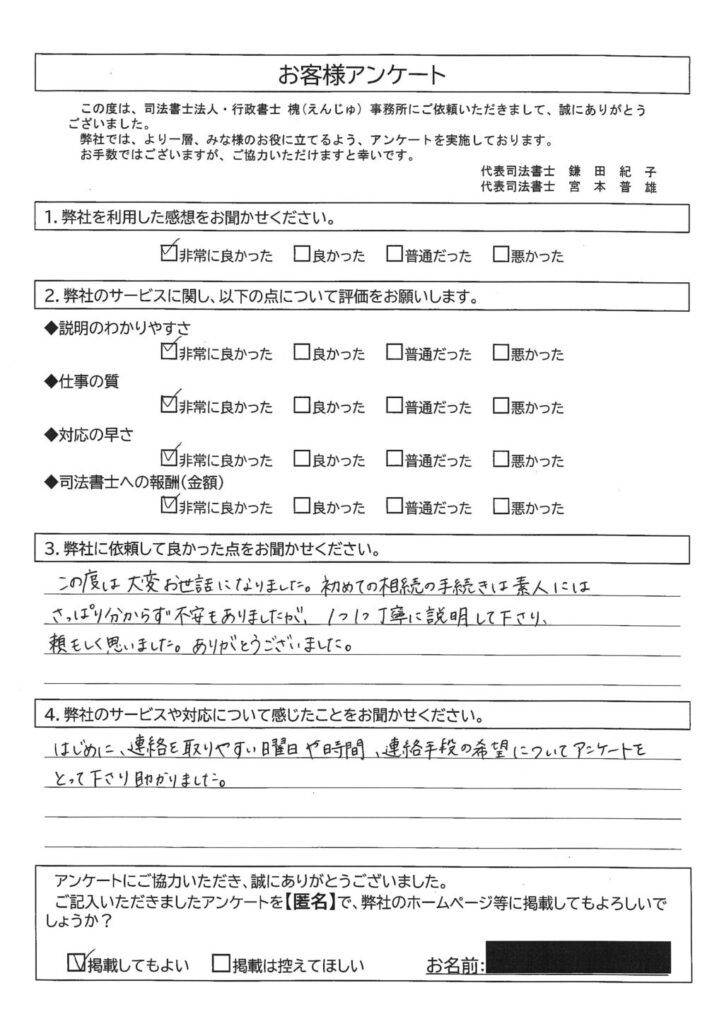 お客様アンケート
この度は、司法書士法人・行政書士 槐(えんじゅ) 事務所にご依頼いただきまして、誠にありがとう
ございました。
弊社では、より一層、みな様のお役に立てるよう、アンケートを実施しております。
お手数ではございますが、ご協力いただけますと幸いです。
代表司法書士 鎌 田 紀 子
代表司法書士 宮 本 普 雄
1. 弊社を利用した感想をお聞かせください。
☑非常に良かった □良かった □普通だった □悪かった
2. 弊社のサービスに関し、以下の点について評価をお願いします。
◆説明のわかりやすさ
☑非常に良かった □良かった □普通だった □悪かった
◆仕事の質
☑非常に良かった □良かった □普通だった □悪かった
◆対応の早さ
☑非常に良かった □良かった □普通だった □悪かった
◆司法書士への報酬(金額)
☑非常に良かった □良かった □普通だった □悪かった
3. 弊社に依頼して良かった点をお聞かせください。
この度は大変お世話になりました。初めての相続の手続きは素人には
さっぱり分からず不安もありましたが、1つ1つ丁寧に説明して下さり、
頼もしく思いました。ありがとうございました。
4. 弊社のサービスや対応について感じたことをお聞かせください。
はじめに、連絡を取りやすい曜日や時間、連絡手段の希望についてアンケートを
とって下さり助かりました。
アンケートにご協力いただき、誠にありがとうございました。
ご記入いただきましたアンケートを【匿名】で、弊社のホームページ等に掲載してもよろしいで
しょうか?
☑掲載してもよい □掲載は控えてほしい お名前: